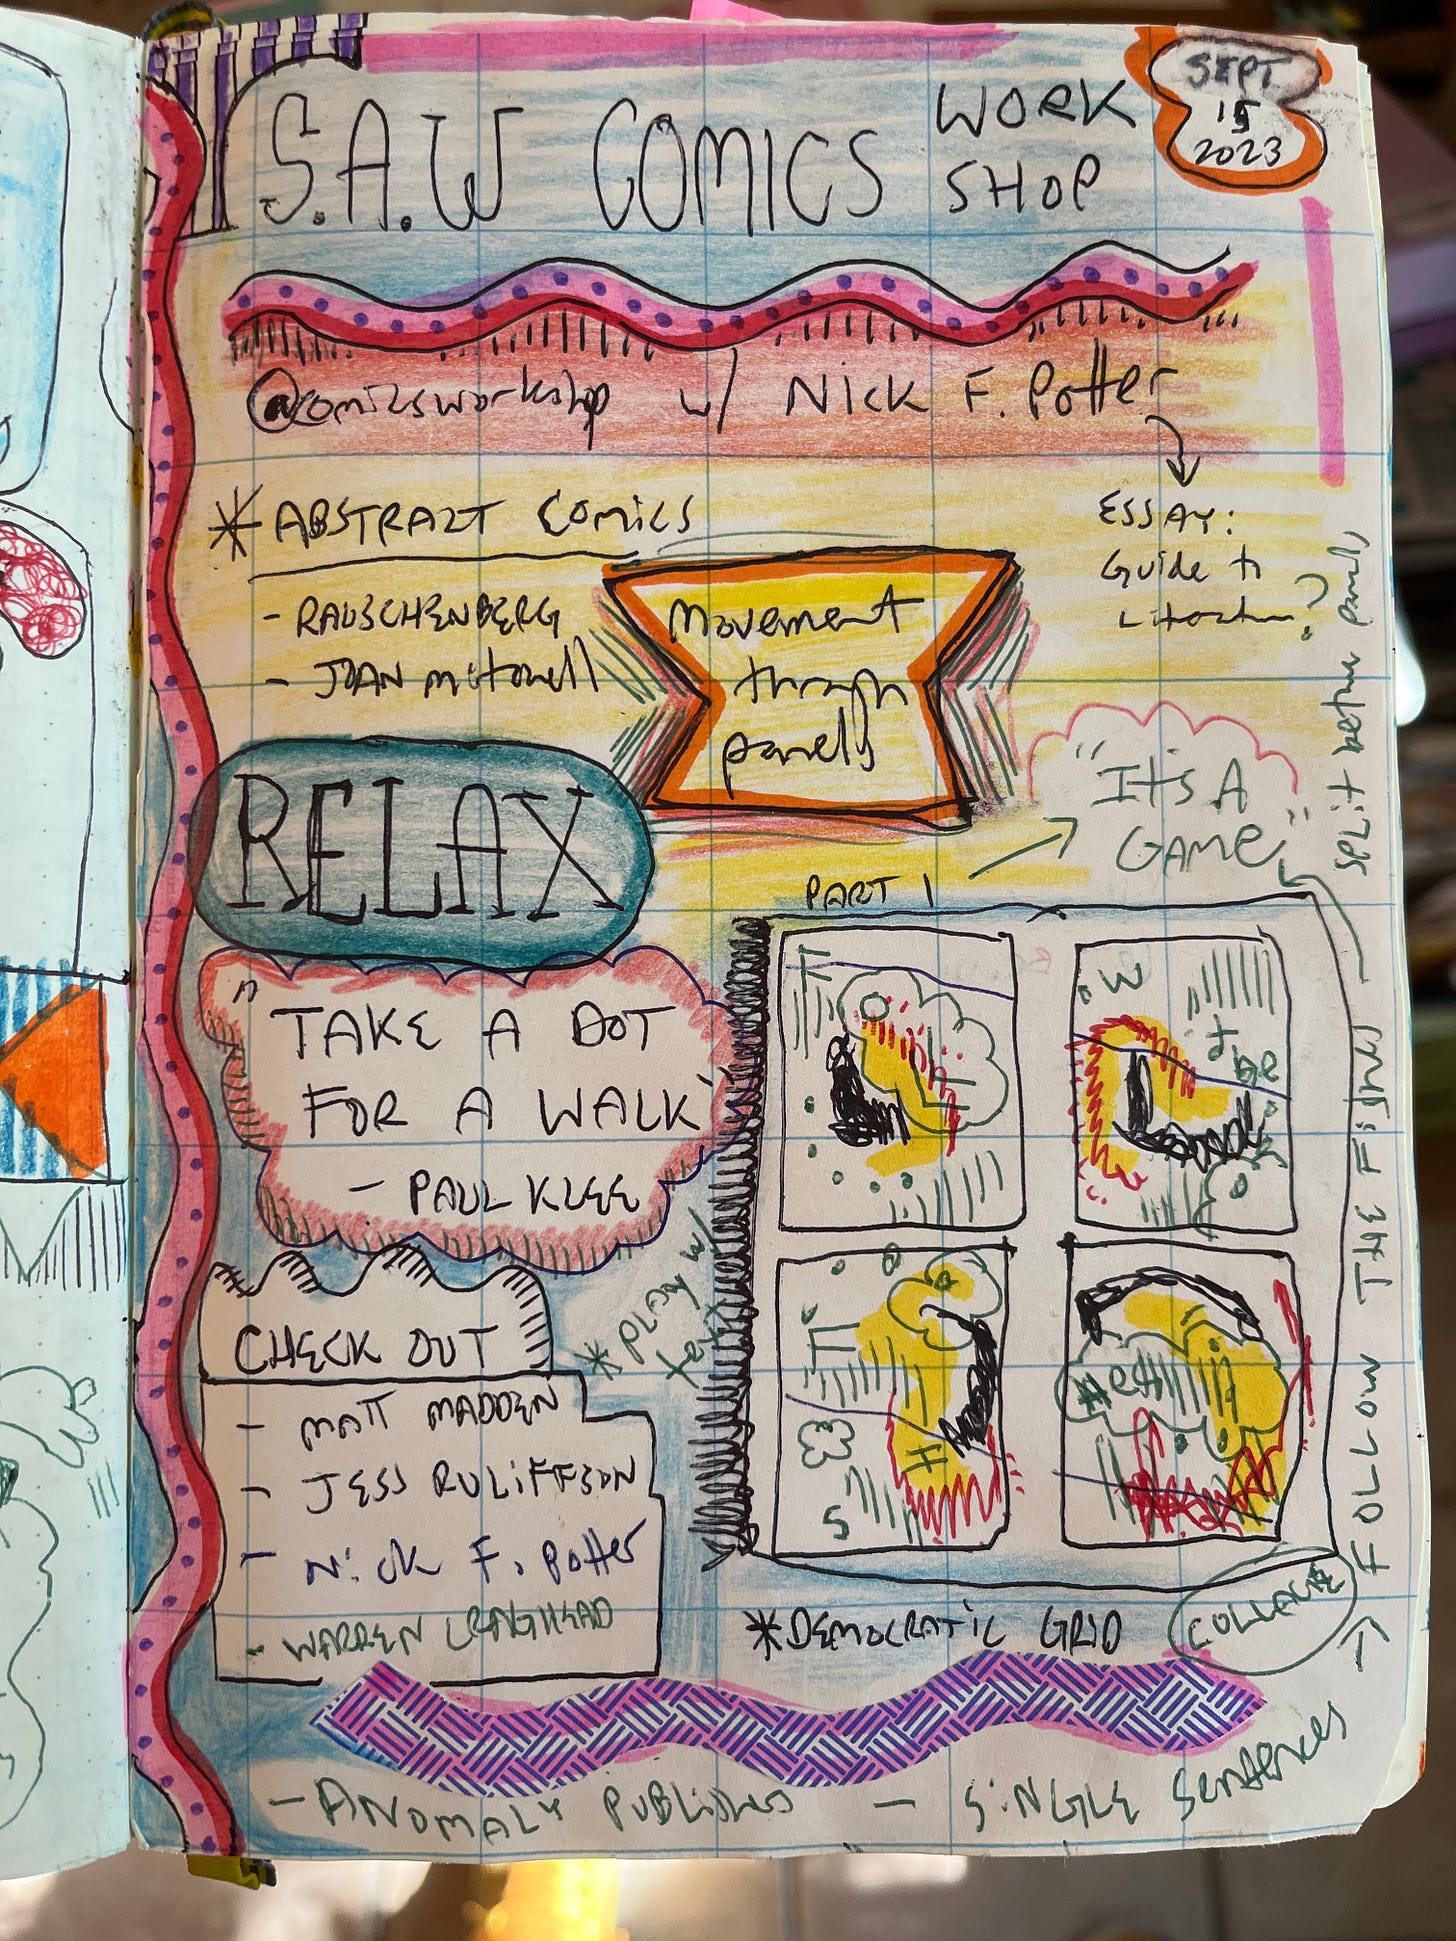 S.A.W COMICS
WORK
SHOP
SEPT
15
2023
@comicsworkshop w/ Nick F. Potter
* ABSTRACT COMICS
- RAUSCHENBERG
- JOAN Mitchell
Movement
through
panels
ESSAY:
Guide to
"ITS A
GAME"
RELAX
"TAKE A DOT
FOR A WALK"
- PAUL KLEE
CHECK OUT
- MATT MADDEN
- JESS RULIFFSON
- Nick F. Potter
- WARREN CRAGHEAD
* PLAY w/
text
PART 1
* DEMOCRATIC GRID
COLLAGE
→ FOLLOW THE FISH
split between panels
- ANOMALY PUBLISHES
- SINGLE SENTENCES